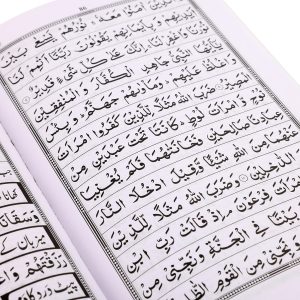 ۵۶
اٰمَنُوْا مَعَهٗ ۚ نُوْرُهُمْ يَسْعٰى بَيْنَ
اَيْدِيْهِمْ وَبِاَيْمَانِهِمْ يَقُوْلُوْنَ رَبَّنَاۤ اَتْمِمْ لَنَا
نُوْرَنَا وَاغْفِرْ لَنَا ۚ اِنَّكَ عَلٰى كُلِّ شَيْءٍ قَدِيْرٌ
يٰۤاَيُّهَا النَّبِيُّ جَاهِدِ الْكُفَّارَ وَالْمُنٰفِقِيْنَ
وَاغْلُظْ عَلَيْهِمْ ؕ وَمَاْوٰىهُمْ جَهَنَّمُ ؕ وَبِئْسَ
الْمَصِيْرُ ضَرَبَ اللّٰهُ مَثَلًا لِّلَّذِيْنَ كَفَرُوا امْرَاَتَ
نُوْحٍ وَّامْرَاَتَ لُوْطٍ ؕ كَانَتَا تَحْتَ عَبْدَيْنِ مِنْ
عِبَادِنَا صَالِحَيْنِ فَخَانَتٰهُمَا فَلَمْ يُغْنِيَا
عَنْهُمَا مِنَ اللّٰهِ شَيْـًٔا وَّقِيْلَ ادْخُلَا النَّارَ
وَضَرَبَ اللّٰهُ مَثَلًا لِّلَّذِيْنَ
امْرَاَتَ فِرْعَوْنَ ۘ اِذْ قَالَتْ رَبِّ ابْنِ
بَيْتًا فِي الْجَنَّةِ وَنَجِّنِيْ مِنْ
وَنَجِّنِيْ مِنَ الْقَوْمِ